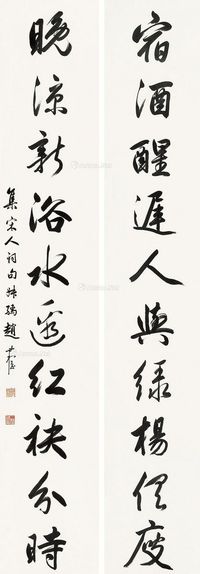 宿酒醒遲人與緑楊俱瘦
晚涼新浴水邊紅袂分時
集宋人詞句叔孺趙